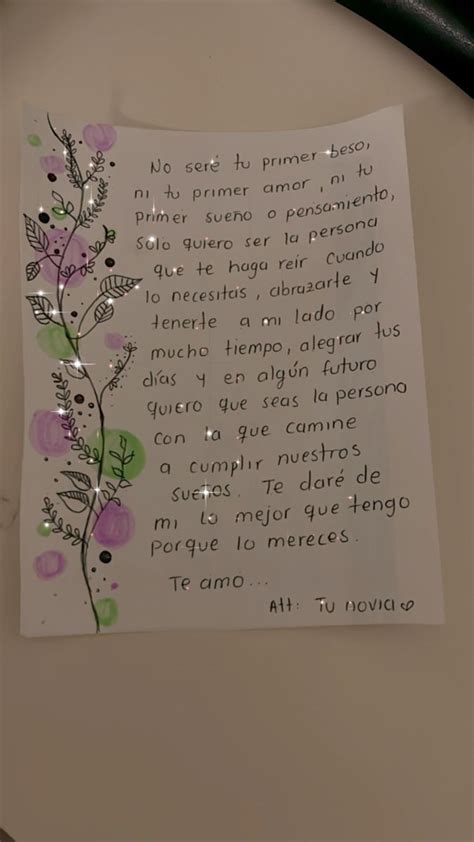 No seré tu primer beso,
ni tu primer amor, ni tu
primer sueño o pensamiento,
solo quiero ser la persona
que te haga reír cuando
lo necesitas, abrazarte y
tenerte a mi lado por
mucho tiempo, alegrar tus
días y en algún futuro
quiero que seas la persona
con la que camine
a cumplir nuestros
sueños. Te daré de
mi lo mejor que tengo
porque lo mereces.
Te amo...
Att: Tu novia